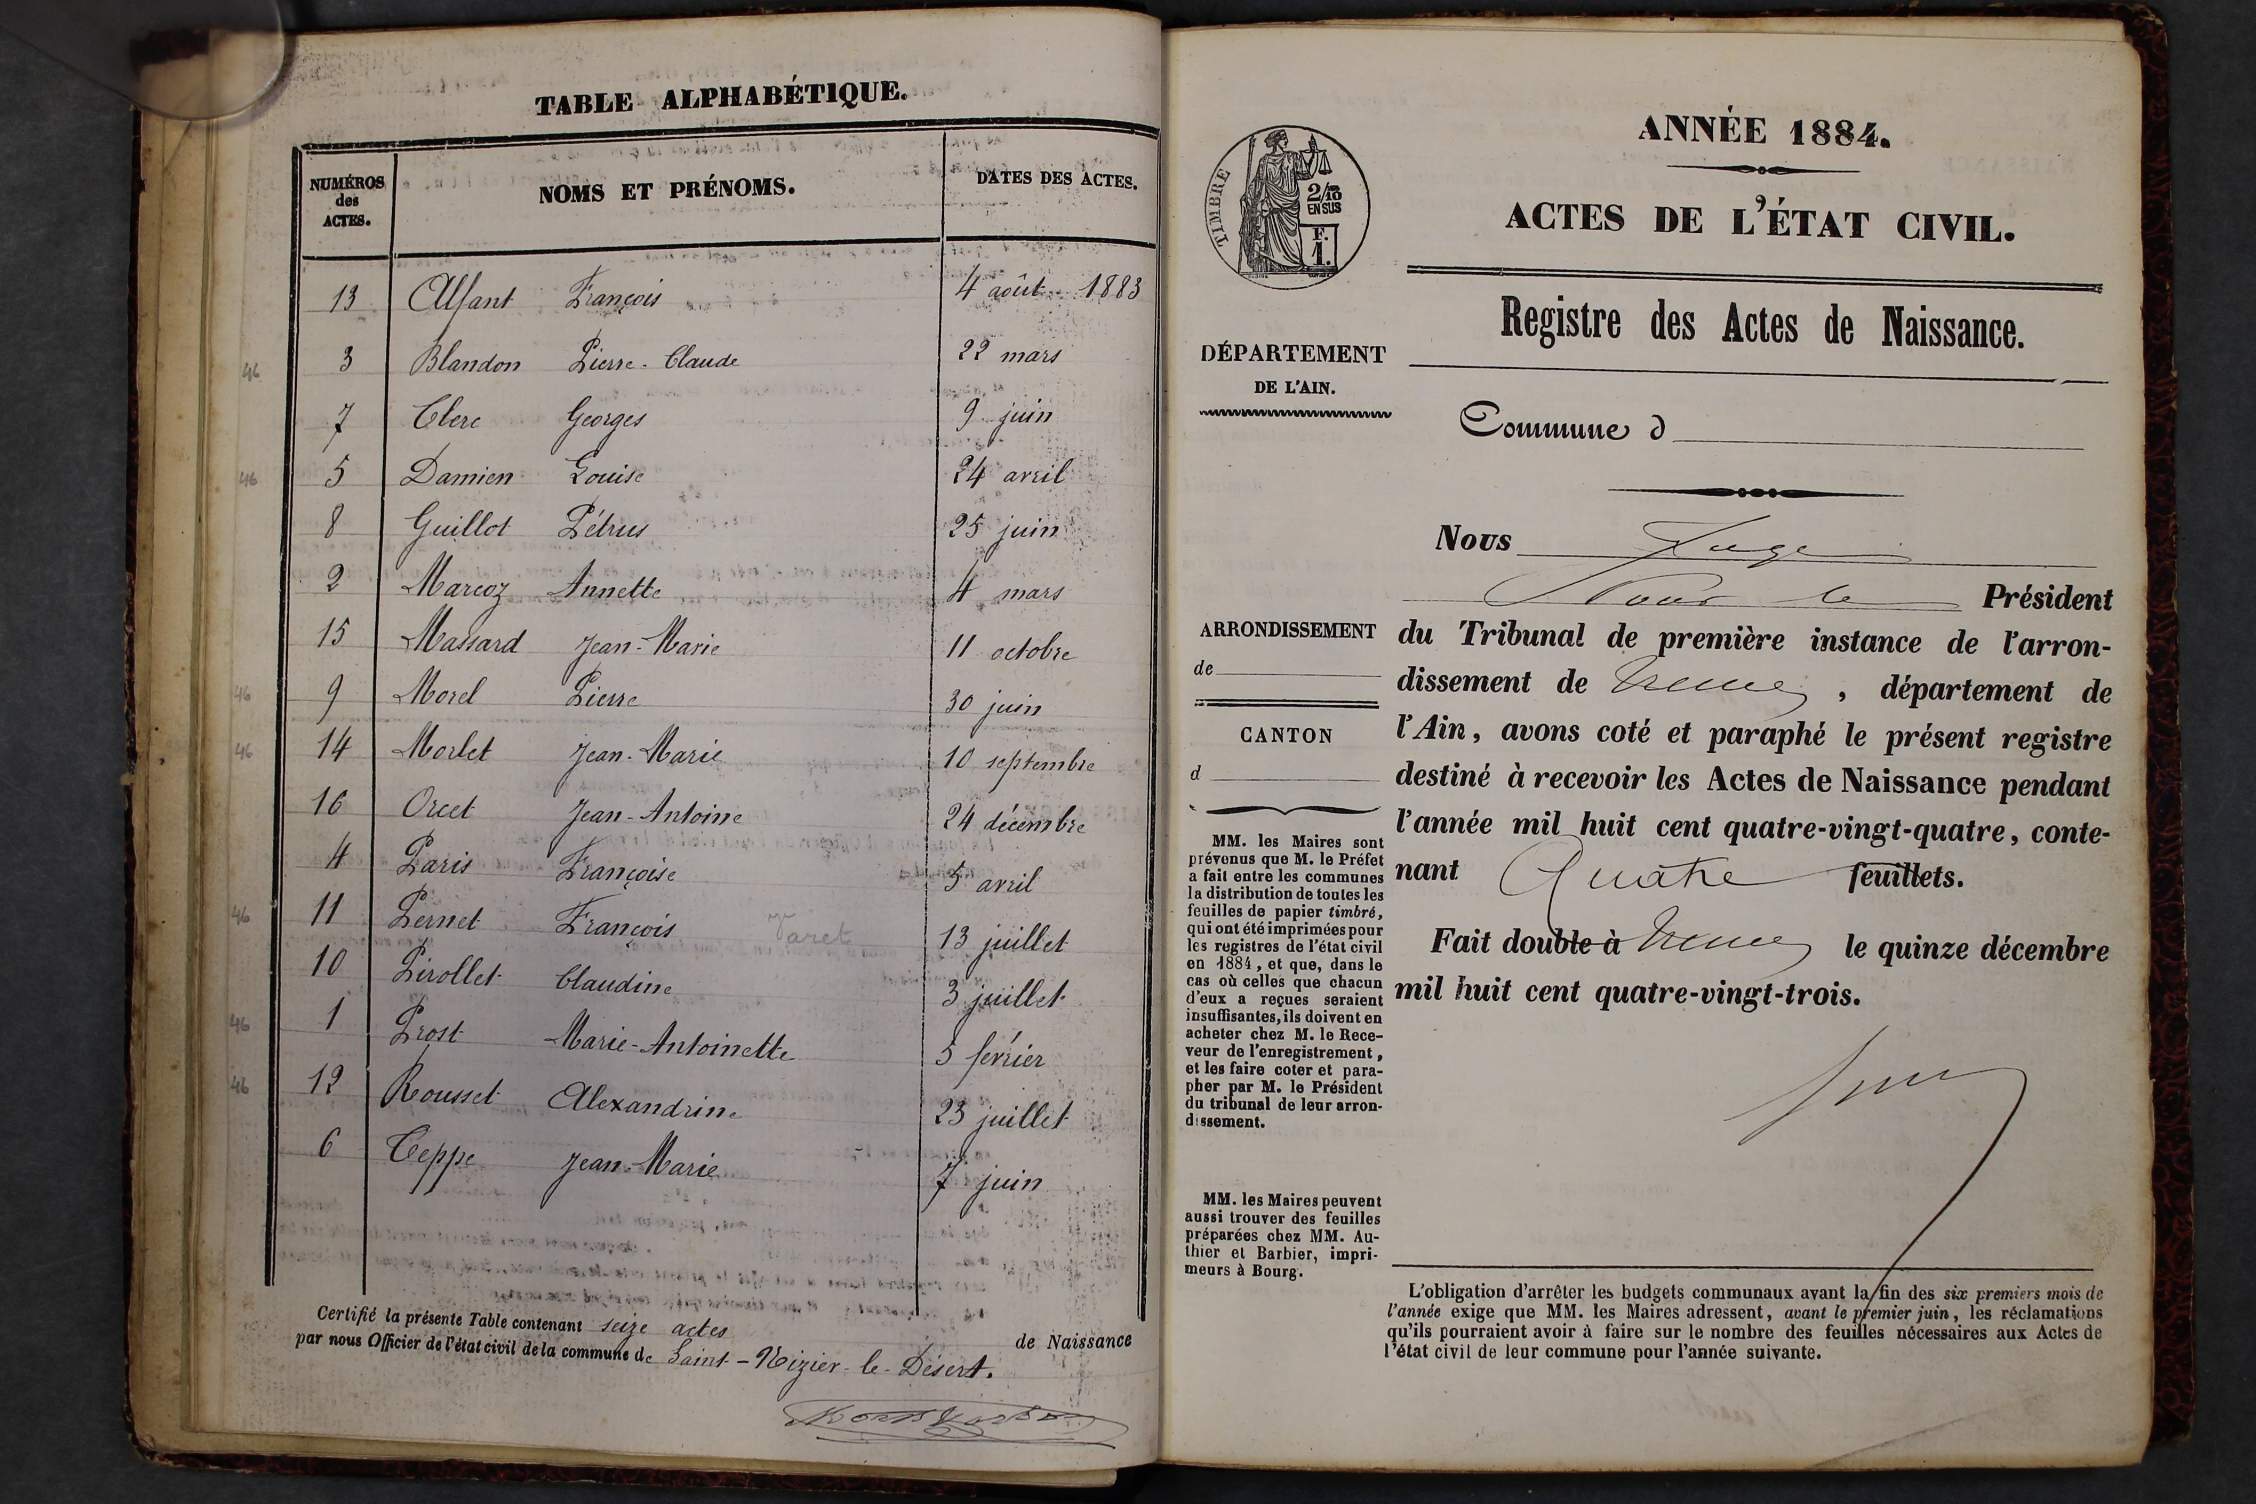 TABLE ALPHABÉTIQUE.
NUMÉROS des ACTES.
NOMS ET PRÉNOMS.
DATES DES ACTES.
13 Alfant François 4 août 1883
46 3 Blandon Pierre-Claude 22 mars
7 Clerc Georges 9 juin
46 5 Damien Louise 24 avril
8 Guillot Pétrus 25 juin
2 Marcoz Annette 4 mars
15 Massard Jean-Marie 11 octobre
46 9 Morel Pierre 30 juin
46 14 Morlet Jean-Marie 10 septembre
16 Orcet Jean-Antoine 24 décembre
4 Paris Françoise 5 avril
46 11 Pernet François Varet 13 juillet
10 Pirollet Claudine 3 juillet
46 1 Prost Marie-Antoinette 5 février
46 12 Rousset Alexandrine 23 juillet
6 Teppe Jean-Marie 7 juin
Certifié la présente Table contenant seize actes de Naissance
par nous Officier de l'état civil de la commune de Saint-Nizier-le-Désert.
ANNÉE 1884.
TIMBRE
2/10
EN SUS
F.
1.
ACTES DE L'ÉTAT CIVIL.
Registre des Actes de Naissance.
DÉPARTEMENT
DE L'AIN.
Commune d
Nous Juge
Pour le Président
ARRONDISSEMENT
de
CANTON
d
du Tribunal de première instance de l'arron-
dissement de Trévoux, département de
l'Ain, avons coté et paraphé le présent registre
destiné à recevoir les Actes de Naissance pendant
l'année mil huit cent quatre-vingt-quatre, conte-
nant Quatre feuillets.
Fait double à Trévoux le quinze décembre
mil huit cent quatre-vingt-trois.
MM. les Maires sont
prévenus que M. le Préfet
a fait entre les communes
la distribution de toutes les
feuilles de papier timbré,
qui ont été imprimées pour
les registres de l'état civil
en 1884, et que, dans le
cas où celles que chacun
d'eux a reçues seraient
insuffisantes, ils doivent en
acheter chez M. le Rece-
veur de l'enregistrement,
et les faire coter et para-
pher par M. le Président
du tribunal de leur arron-
dissement.
MM. les Maires peuvent
aussi trouver des feuilles
préparées chez MM. Au-
thier et Barbier, impri-
meurs à Bourg.
L'obligation d'arrêter les budgets communaux avant la fin des six premiers mois de
l'année exige que MM. les Maires adressent, avant le premier juin, les réclamations
qu'ils pourraient avoir à faire sur le nombre des feuilles nécessaires aux Actes de
l'état civil de leur commune pour l'année suivante.